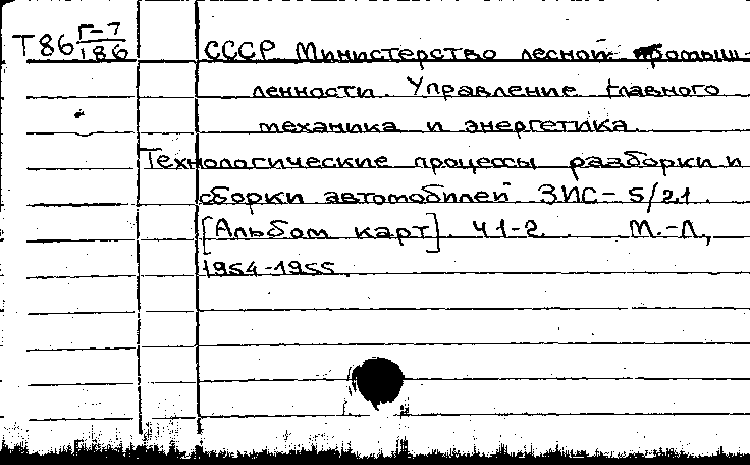 Т86 Г-7/186
СССР Министерство лесной промыш-
ленности. Управление главного
механика и энергетика.
Технологические процессы разборки и
сборки автомобилей ЗИС-5/21.
[Альбом карт]. Ч 1-2. М.-Л.,
1954-1955.